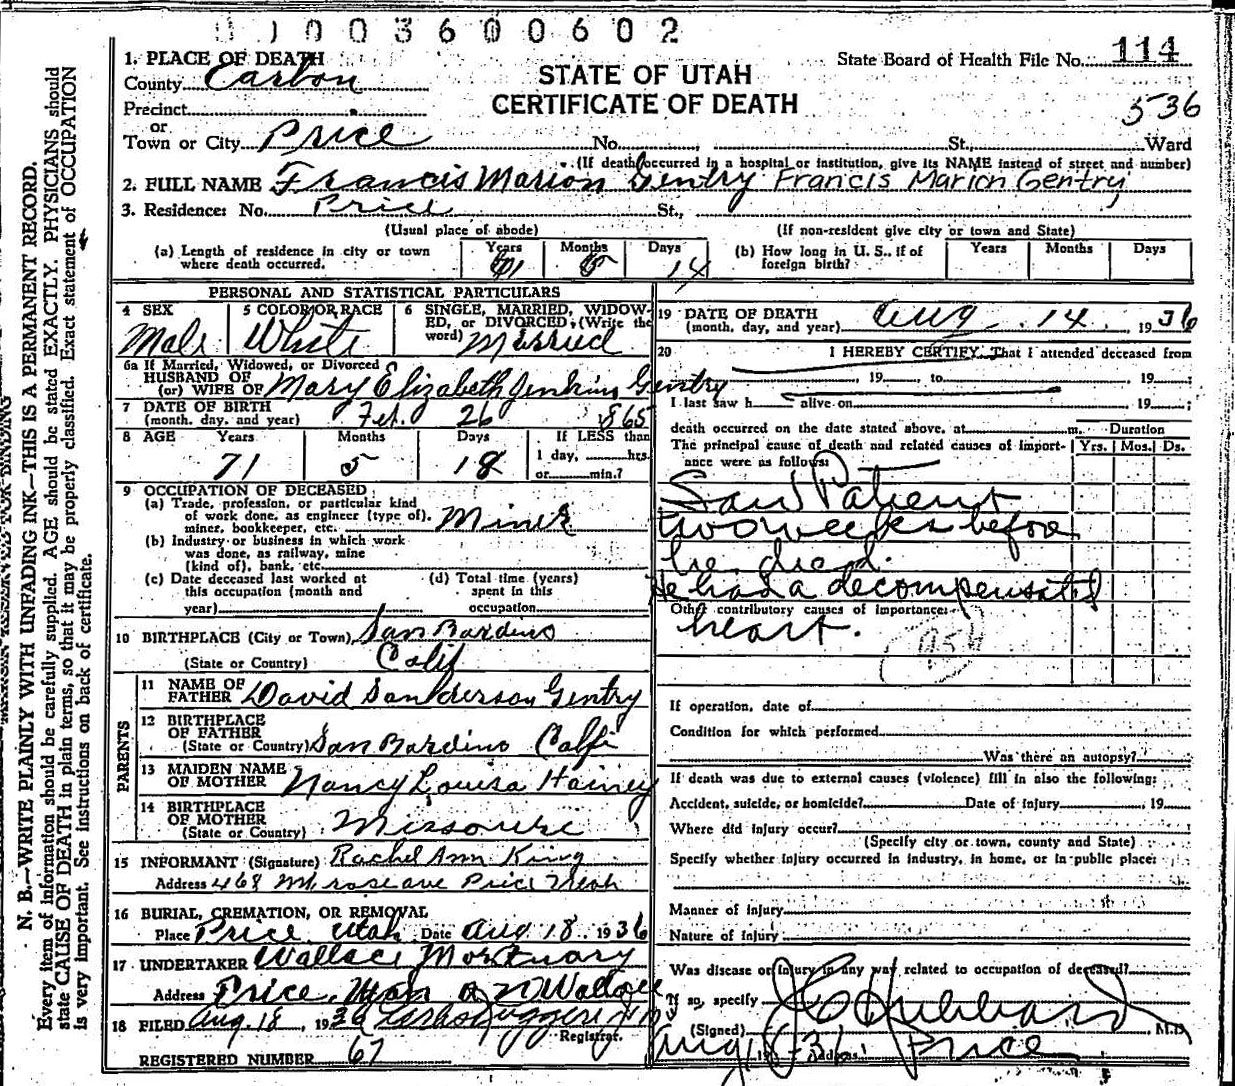 0 1 0 0 3 6 0 0 6 0 2
1. PLACE OF DEATH
County Carbon
Precinct
or
Town or City Price No. St., Ward
(If death occurred in a hospital or institution, give its NAME instead of street and number)
STATE OF UTAH
CERTIFICATE OF DEATH
State Board of Health File No. 114
536
2. FULL NAME Francis Marion Gentry Francis Marion Gentry
3. Residence: No. Price St.,
(Usual place of abode) (If non-resident give city or town and State)
(a) Length of residence in city or town where death occurred. Years Months Days 14
(b) How long in U. S., if of foreign birth? Years Months Days
N. B.—WRITE PLAINLY WITH UNFADING INK—THIS IS A PERMANENT RECORD.
Every item of information should be carefully supplied. AGE should be stated EXACTLY. PHYSICIANS should
state CAUSE OF DEATH in plain terms, so that it may be properly classified. Exact statement of OCCUPATION
is very important. See instructions on back of certificate.
PERSONAL AND STATISTICAL PARTICULARS
4 SEX Male
5 COLOR OR RACE White
6 SINGLE, MARRIED, WIDOWED, or DIVORCED, (Write the word) Married
6a If Married, Widowed, or Divorced
HUSBAND OF
(or) WIFE OF Mary Elizabeth Jenkins Gentry
7 DATE OF BIRTH
(month, day, and year) Feb. 26 1865
8 AGE Years Months Days If LESS than
71 5 18 1 day, hrs.
or min.?
9 OCCUPATION OF DECEASED
(a) Trade, profession, or particular kind
of work done, as engineer (type of),
miner, bookkeeper, etc. Miner
(b) Industry or business in which work
was done, as railway, mine
(kind of), bank, etc.
(c) Date deceased last worked at
this occupation (month and
year)
(d) Total time (years)
spent in this
occupation
10 BIRTHPLACE (City or Town) San Bardino
(State or Country) Calif
PARENTS
11 NAME OF
FATHER David Sanderson Gentry
12 BIRTHPLACE
OF FATHER
(State or Country) San Bardino Calfi
13 MAIDEN NAME
OF MOTHER Nancy Louisa Hainey
14 BIRTHPLACE
OF MOTHER
(State or Country) Missouri
15 INFORMANT (Signature) Rachel Ann King
Address 468 Price Utah
16 BURIAL, CREMATION, OR REMOVAL
Place Price Utah Date Aug 18 1936
17 UNDERTAKER Wallace Mortuary
Address Price, Utah Wallace
18 FILED Aug. 18, 1936
Registrar.
REGISTERED NUMBER 67
19 DATE OF DEATH
(month, day, and year) Aug. 14 1936
20 I HEREBY CERTIFY, That I attended deceased from
, 19 , to , 19 ;
I last saw h alive on 19 ;
death occurred on the date stated above, at m. Duration
The principal cause of death and related causes of importance were as follows: Yrs. Mos. Ds.
Saw Patient
two weeks before
he died.
He had a decompensated
Other contributory causes of importance:
heart.
95B
If operation, date of
Condition for which performed
Was there an autopsy?
If death was due to external causes (violence) fill in also the following:
Accident, suicide, or homicide? Date of injury , 19
Where did injury occur?
(Specify city or town, county and State)
Specify whether injury occurred in industry, in home, or in public place:
Manner of injury
Nature of injury
Was disease or injury in any way related to occupation of deceased?
If so, specify
(Signed) Hubbard M.D.
Aug 18 1936 Address Price